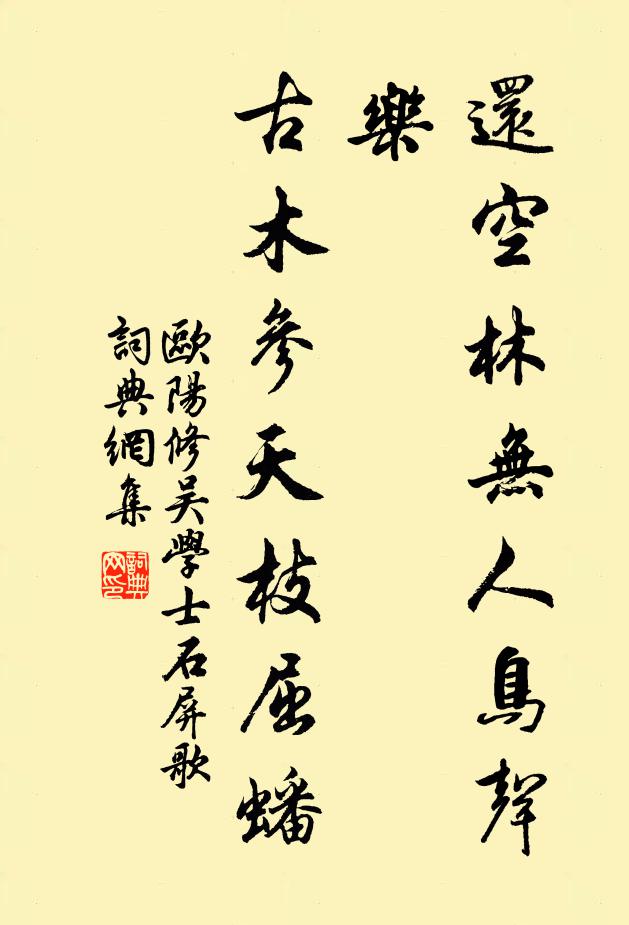 還空林無人鳥聲
樂
古木參天枝屈蟠
歐陽修吳學士石屏歌
詞典網集
詞典
网印